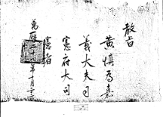 敎旨
黃愼爲嘉
義大夫司
憲府大司
憲者
萬曆